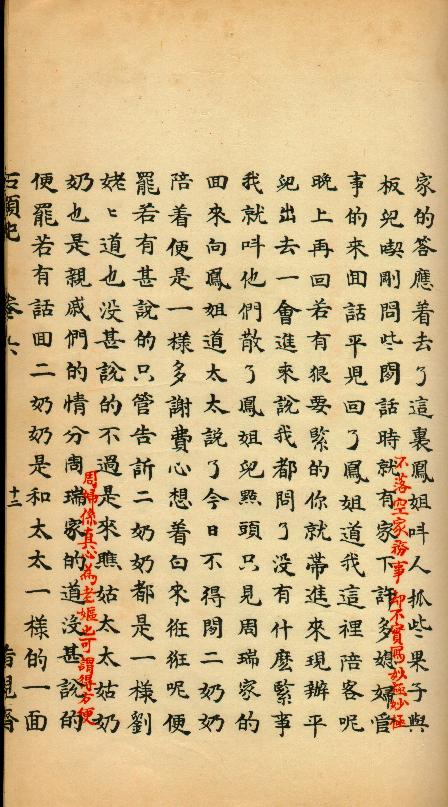 家的答應着去了這裏鳳姐叫人抓些果子與
板兒喫剛問些閒話時就有家下許多媳婦管
不落空家務事却不實寫妙極妙極
事的來回話平兒回了鳳姐道我這裡陪客呢
晚上再回若有狠要緊的你就帶進來現辦平
兒出去一會進來說我都問了没有什麽緊事
我就呌他們散了鳳姐兒點頭只見周瑞家的
回來向鳳姐道太太説了今日不得閒二奶奶
陪着便是一樣多謝費心想着白來徃徃呢便
罷若有甚說的只管告訴二奶奶都是一樣劉
姥〻道也没甚説的不過是來瞧姑太太姑奶
奶也是親戚們的情分周瑞家的道沒甚説的
周婦係真心為老嫗也可謂得方便
便罷若有話回二奶奶是和太太一樣的一面
石頭記 卷六 十二 脂硯齋